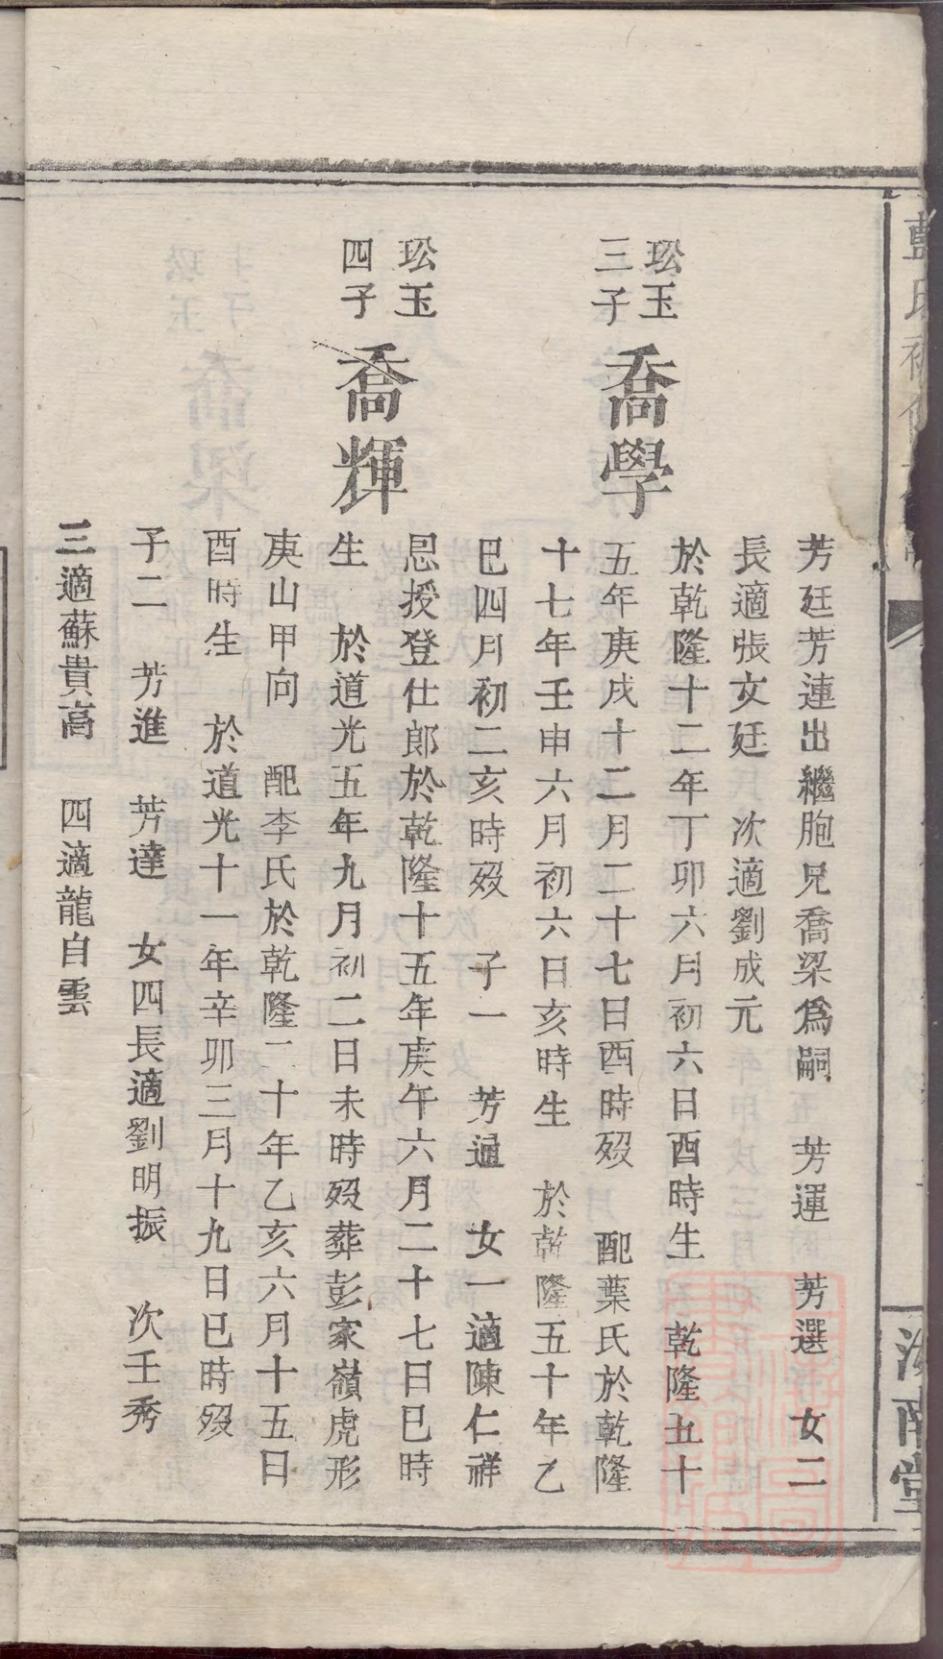 芳廷芳連出繼胞兄喬梁爲嗣　芳運　芳選　女二
長適張文廷　次適劉成元
玜玉
三子
喬學
於乾隆十二年丁卯六月初六日酉時生　乾隆五十
五年庚戌十二月二十七日酉時歿　配葉氏於乾隆
十七年壬申六月初六日亥時生　於乾隆五十年乙
巳四月初二亥時歿　子一　芳通　女一適陳仁祥
玜玉
四子
喬輝
恩授登仕郎於乾隆十五年庚午六月二十七日巳時
生　於道光五年九月初二日未時歿葬彭家嶺虎形
庚山甲向　配李氏於乾隆二十年乙亥六月十五日
酉時生　於道光十一年辛卯三月十九日巳時歿
子二　芳進　芳達　女四長適劉明振　次壬秀
三適蘇貴高　四適龍自雲
南堂